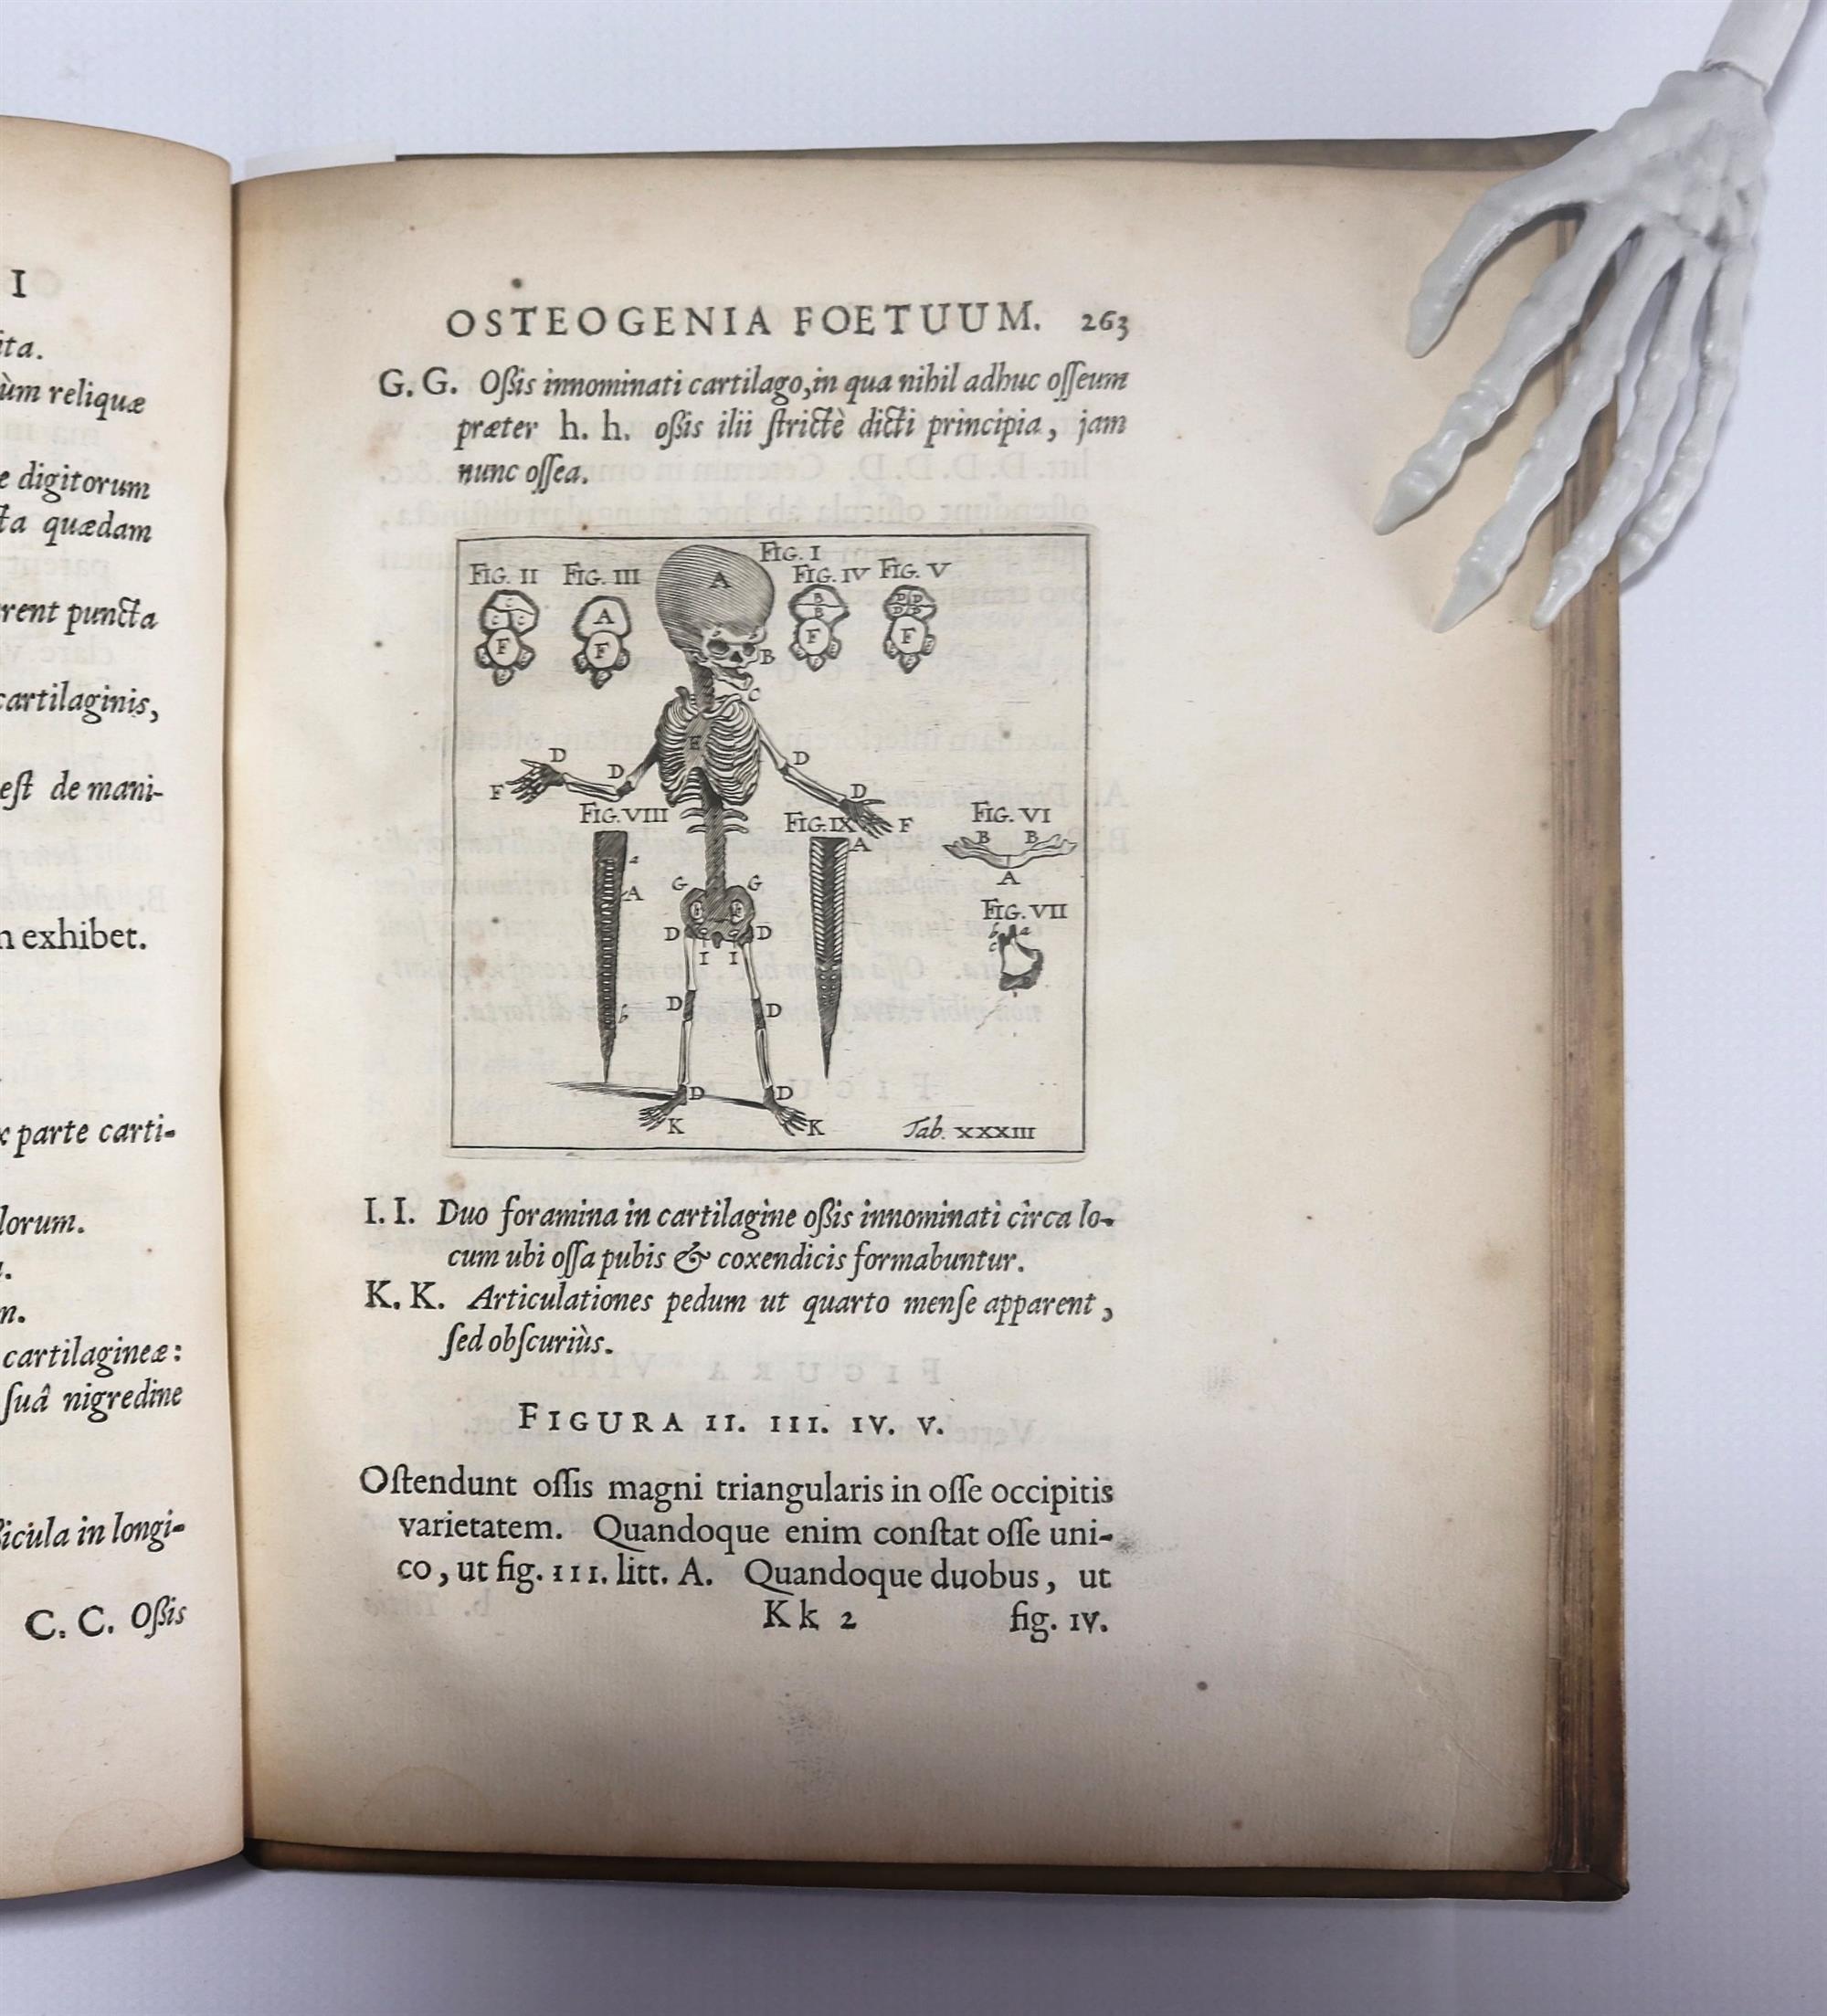 I
ita.
ùm reliquæ
e digitorum
ta quædam
rent puncta
cartilaginis,
est de mani-
n exhibet.
x parte carti-
lorum.
n.
cartilagineæ:
ſuâ nigredine
ſicula in longi-
C. C. Oſsis
OSTEOGENIA FOETUUM. 263
G. G. Oſsis innominati cartilago, in qua nihil adhuc oſſeum
præter h. h. oſsis ilii ſtrictè dicti principia, jam
nunc oſſea.
FIG. I
FIG. II FIG. III FIG. IV FIG. V
C
C C
F
A
F
A
B
B
F
D D
D D
F
B
C
E
D D D D
F F
FIG. VIII FIG. IX FIG. VI
a
A
b
A
B B
A
G G
h h
FIG. VII
b a
c
D D
I I
D D
D D
K K
Tab. XXXIII
I. I. Duo foramina in cartilagine oſsis innominati circa lo-
cum ubi oſſa pubis & coxendicis formabuntur.
K. K. Articulationes pedum ut quarto menſe apparent,
ſed obſcuriùs.
FIGURA II. III. IV. V.
Oſtendunt oſſis magni triangularis in oſſe occipitis
varietatem. Quandoque enim conſtat oſſe uni-
co, ut fig. III. litt. A. Quandoque duobus, ut
Kk 2 fig. IV.